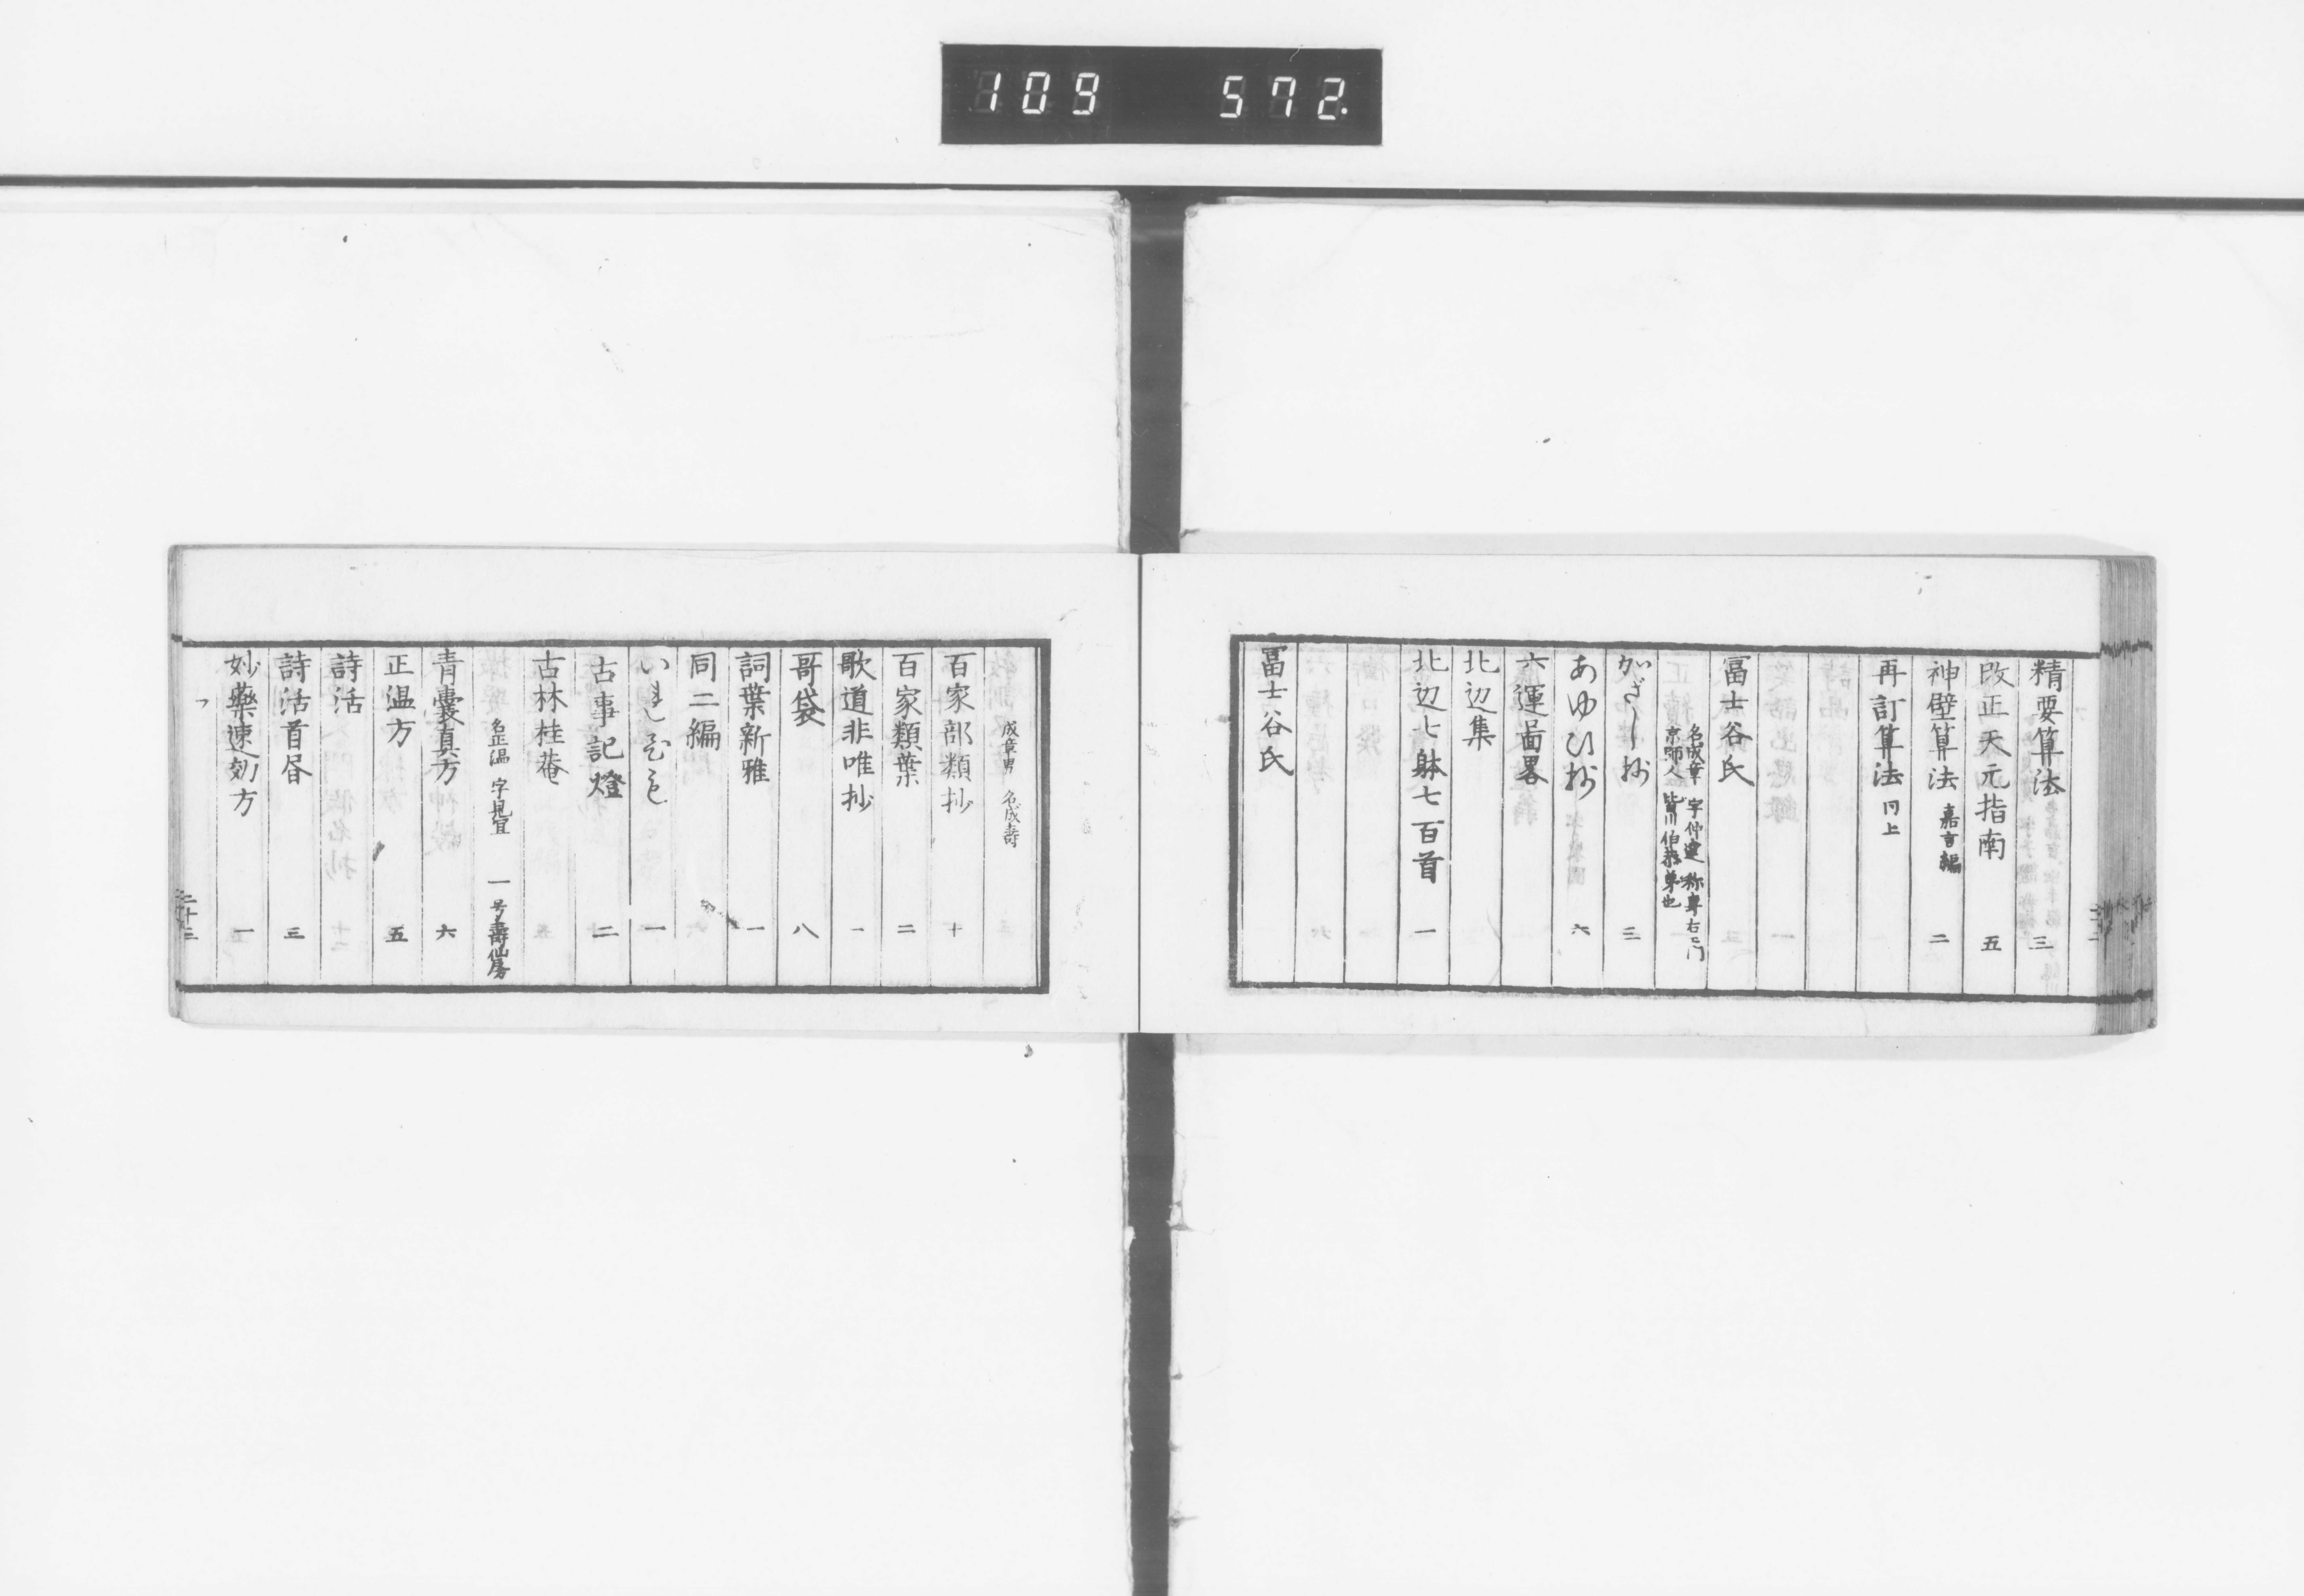 109 572.
精要算法 三
改正天元指南 五
神壁算法 嘉言編 二
再訂算法 同上
冨士谷氏
名成章 字仲達 称専右ェ門
京師人 皆川伯恭弟也
かざし抄 三
あゆひ抄 六
六運啚畧
北辺集
北辺七躰七百首 一
冨士谷氏
成章男 名成寿
百家部類抄 十
百家類葉 二
歌道非唯抄 一
哥袋 八
詞葉新雅 一
同二編
一
古事記燈 二
古林桂菴
名正温 字見宜 一号壽仙房
青囊真方 六
正温方 五
詩活
詩活首昏 三
妙藥速効方 一
フ
二十三